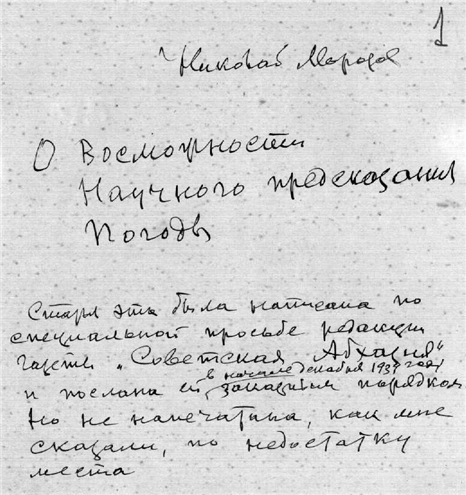 1
Николай Морозов
О Возможности
Научного предсказания
Погоды
Статья эта была написана по
специальной просьбе редакции
газеты „Советская Абхазия"
в начале декабря 193 года
и послана ей, заказным порядком
но не напечатана, как мне
сказали, по недостатку
места